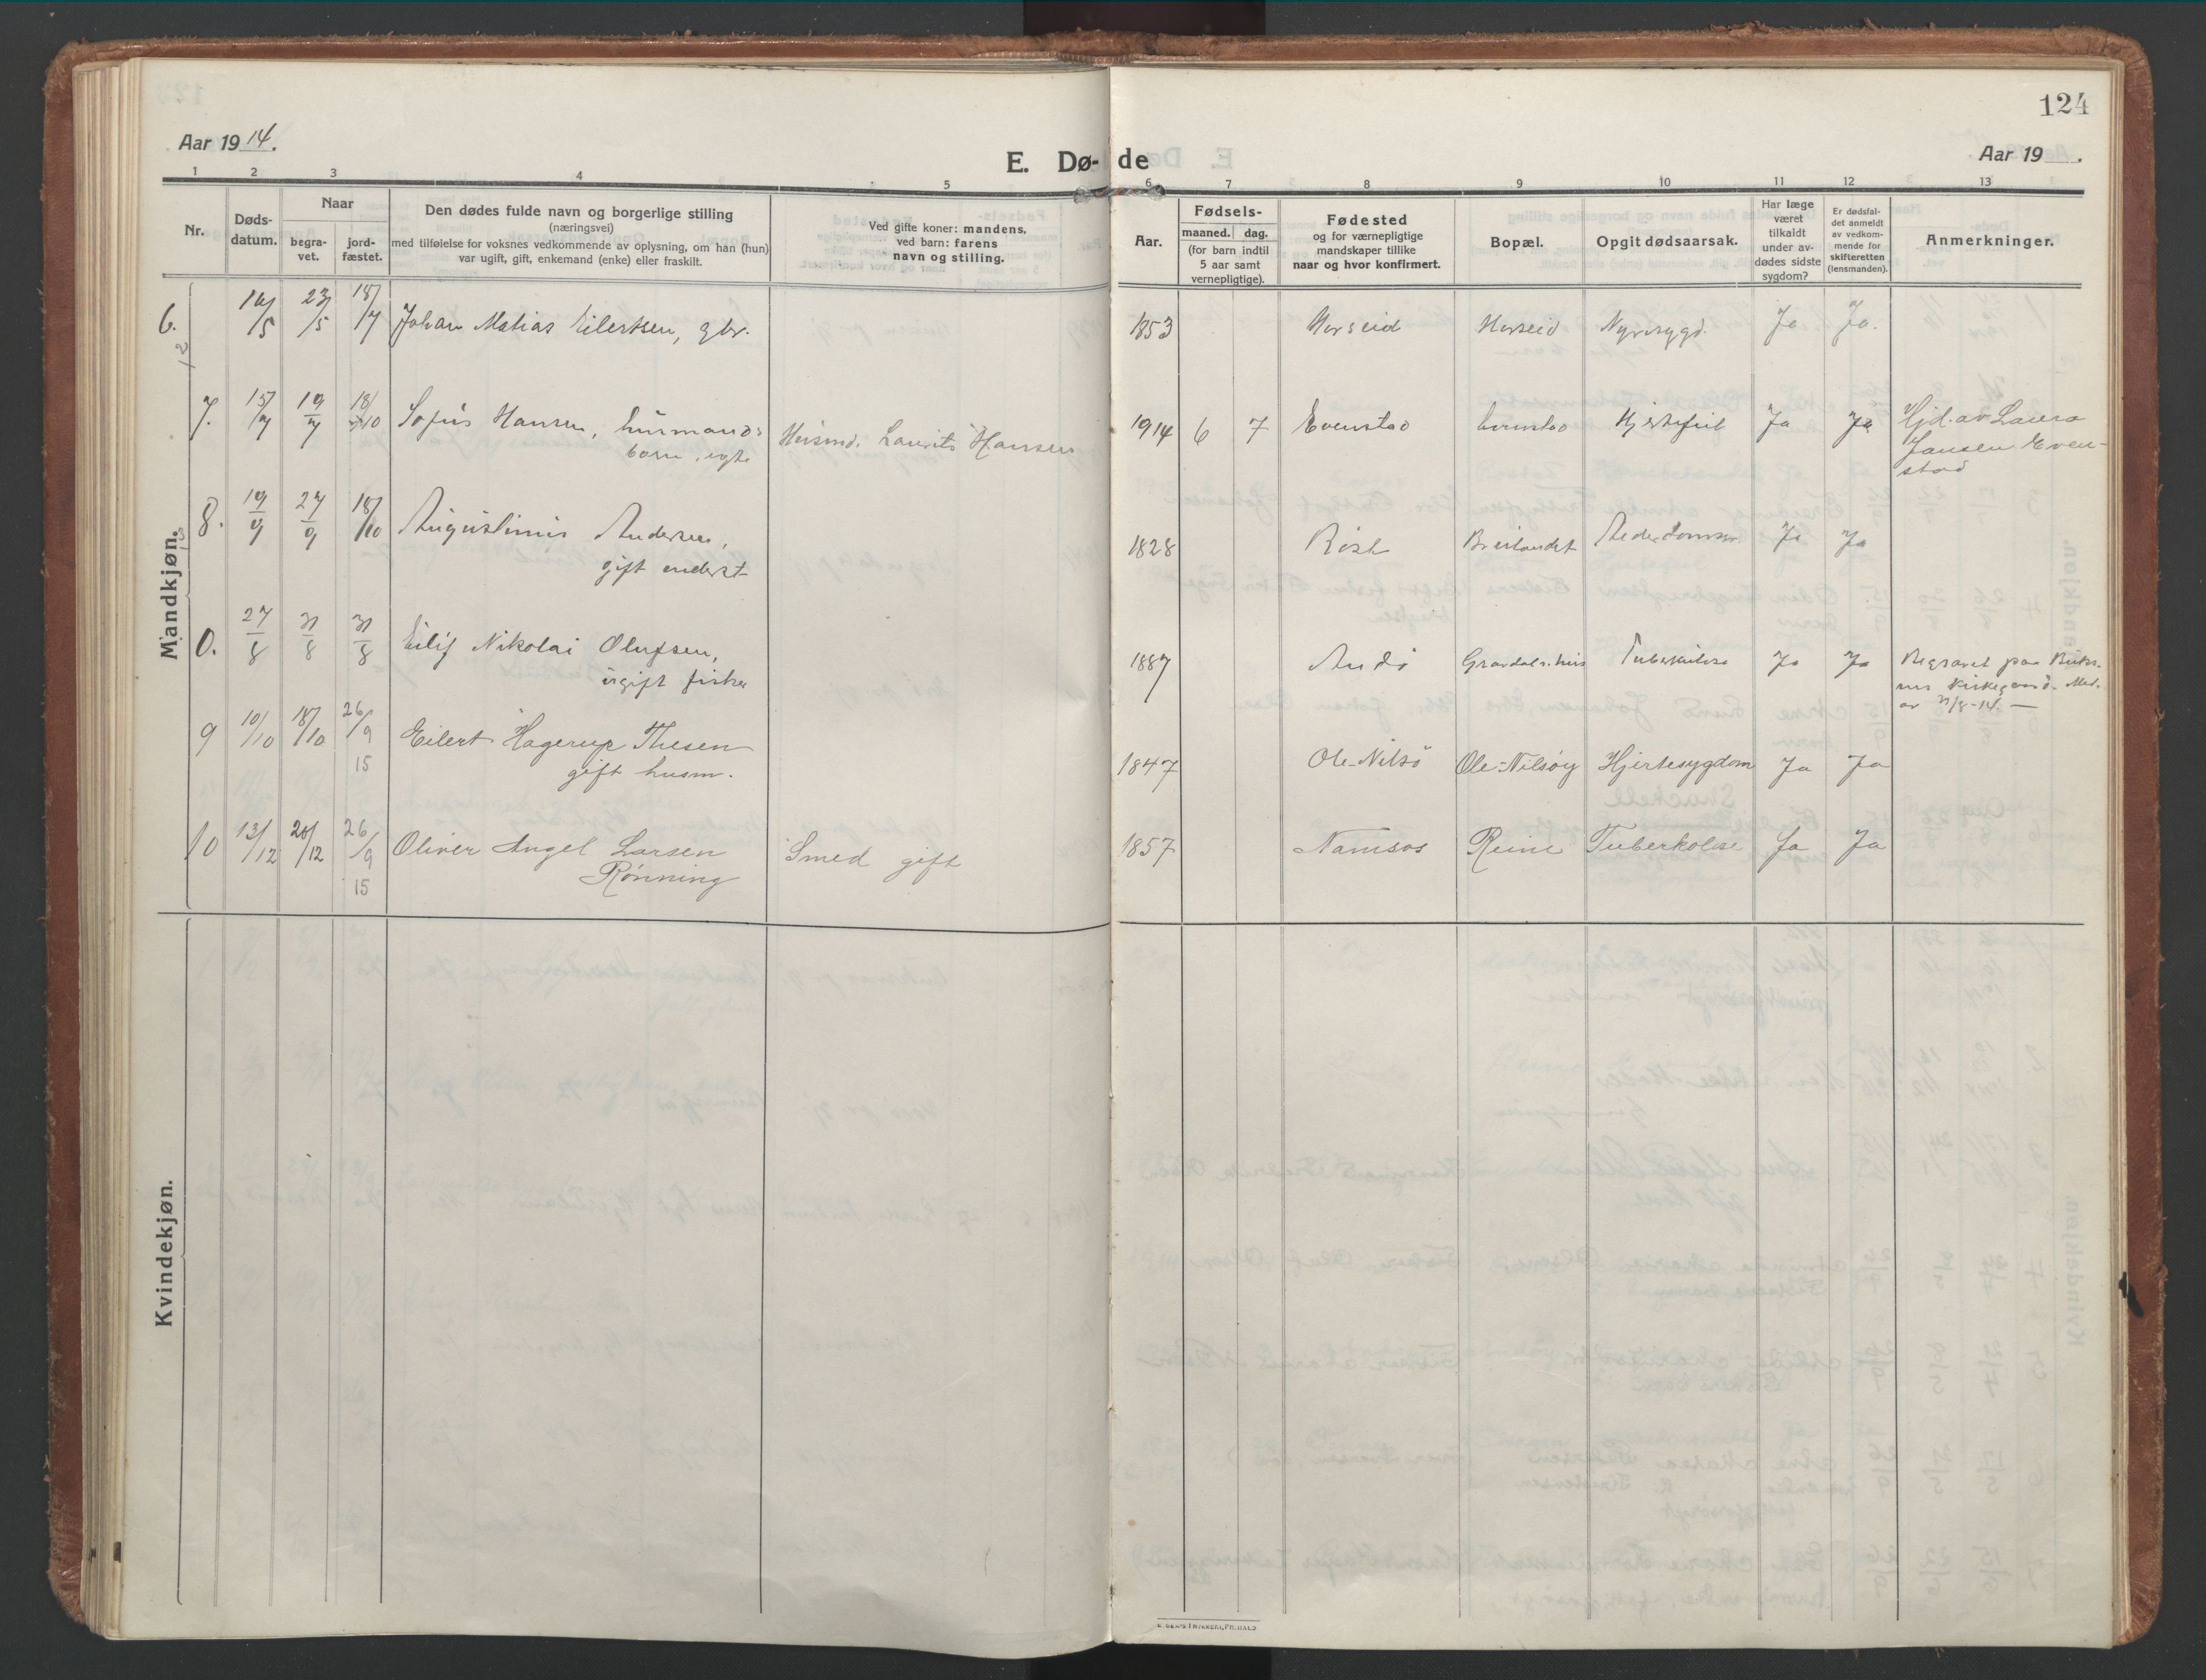 124
Aar 1914.
E. Dø-de
Aar 19 .
1 2 3 4 5 6 7 8 9 10 11 12 13
Nr.
Døds-
datum.
Naar
begra-
vet.
jord-
fæstet.
Den dødes fulde navn og borgerlige stilling
(næringsvei)
med tilføielse for voksnes vedkommende av oplysning, om han (hun)
var ugift, gift, enkemand (enke) eller fraskilt.
Ved gifte koner: mandens,
ved barn: farens
navn og stilling.
Aar.
Fødsels-
maaned. dag.
(for barn indtil
5 aar samt
vernepligtige).
Fødested
og for værnepligtige
mandskaper tillike
naar og hvor konfirmert.
Bopæl.
Opgit dødsaarsak.
Har læge
været
tilkaldt
under av-
dødes sidste
sygdom?
Er dødsfal-
det anmeldt
av vedkom-
mende for
skifteretten
(lensmanden).
Anmerkninger.
Mandkjøn.
6. 16/5 23/5 18/7 Johan Matias Eilertsen, gbr. 1853 Horseid Horseid Nyresygd. Ja Ja.
12
7. 15/7 19/7 18/10 Sofus Hansen, husmands
barn, egte Husmd. Laurits Hansen 1914 6 7 Evenstad Evenstad Hjertefeil Ja Ja Hjd. av Laura
Jansen Even-
stad
8. 19/9 27/9 18/10 Augustinus Andersen,
gift underst- 1828 Røst Breilandet Alderdomssv. Ja Ja
0. 27/8 31/8 31/8 Eilif Nikolai Olufsen,
ugift fisker 1887 Andø Gravdals.hus Tuberkulose Ja Ja Begravet paa Buks-
nes kirkegaard. Med.
av 31/8-14. —
9 10/10 18/10 26/9 15 Eilert Hagerup Thesen
gift husm. 1847 Ole-Nilsö Ole-Nilsöy Hjertesygdom Ja Ja
10 13/12 20/12 26/9 15 Oliver Angel Larsen
Rönning Smed gift 1857 Namsos Reine Tuberkolose Ja Ja
Kvindekjøn.